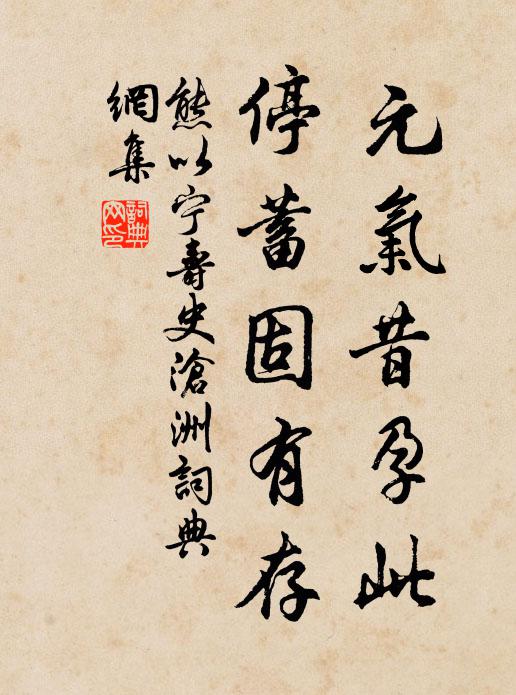 元氣昔孕此
停蓄固有存
熊以宁壽史滄洲詞典
網集
詞典
网印